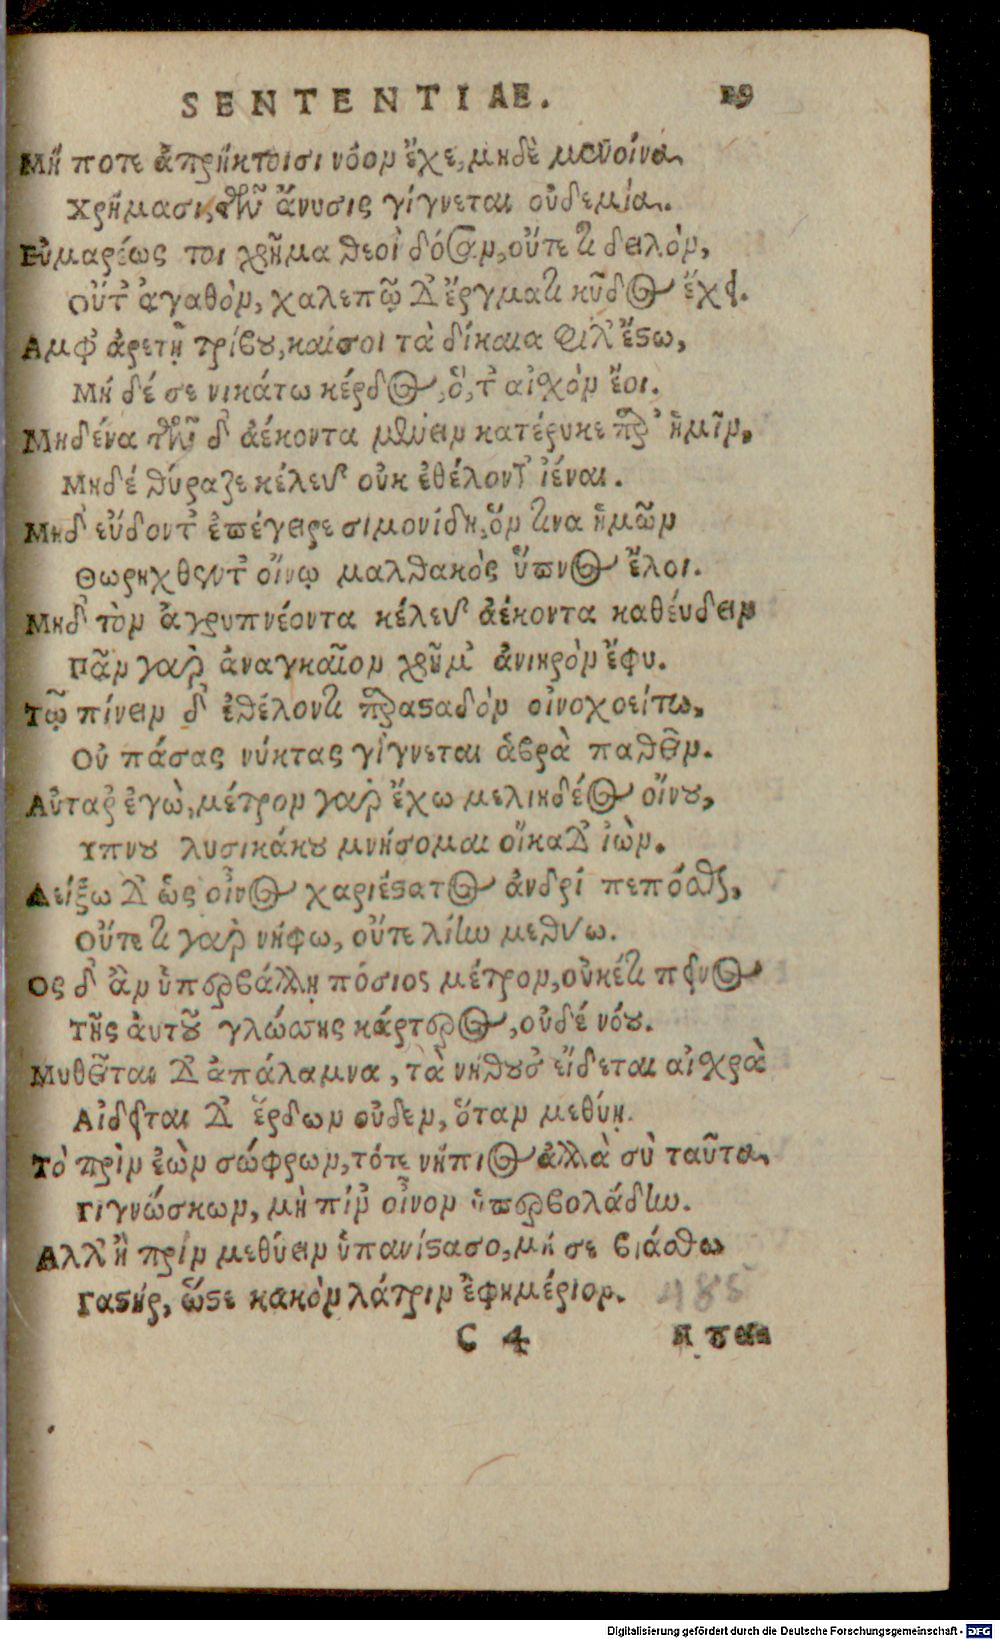 SENTENTIAE. 19
Μή ποτε ἀπρήκτοισι νόον ἔχε, μηδὲ μενοίνα
Χρήμασι, τῶν ἄνυσις γίγνεται οὐδεμία.
Εὐμαρέως τοι χρῆμα θεοὶ δόσαν, οὔτε τι δειλὸν,
Οὔτ' ἀγαθὸν, χαλεπῷ δ' ἔργματι κῦδος ἔχει.
Αμφ' ἀρετῇ τρίβου, καί σοι τὰ δίκαια φίλ' ἔστω,
Μή δέ σε νικάτω κέρδος, ὅ, τ' αἰχὸν ἔοι.
Μηδένα τῶν δ' ἀέκοντα μένειν κατέρυκε παρ' ἡμῖν,
Μηδέ θύραζε κέλευ' οὐκ ἐθέλοντ' ἰέναι.
Μηδ' εὕδοντ' ἐπέγειρε σιμονίδη, ὅν τινα ἡμῶν
Θωρηχθέντ' οἴνῳ μαλθακὸς ὕπνος ἕλοι.
Μηδ' τὸν ἀγρυπνέοντα κέλευ' ἀέκοντα καθέυδειν
Πᾶν γὰρ ἀναγκαῖον χρῆμ' ἀνιηρὸν ἔφυ.
Τῷ πίνειν δ' ἐθέλοντι παρασταδὸν οἰνοχοείτω,
Οὐ πάσας νύκτας γίγνεται ἁβρὰ παθεῖν.
Αὐτὰρ ἐγὼ, μέτρον γὰρ ἔχω μελιηδέος οἴνου,
Υπνου λυσικάκου μνήσομαι οἴκαδ' ἰών.
Δείξω δ' ὡς οἶνος χαριέστατος ἀνδρί πεπόσθαι,
Οὔτε τι γὰρ νήφω, οὔτε λίην μεθύω.
Ος δ' ἂν ὑπερβάλλῃ πόσιος μέτρον, οὐκέτι κεῖνος
Τῆς ἁυτοῦ γλώσσης κάρτερος, οὐδέ νόου.
Μυθεῖται δ' ἀπάλαμνα, τὰ νήθουσ' εἴδεται αἰχρὰ
Αἰδεῖται δ' ἔρδων οὐδεν, ὅταν μεθύῃ.
Τὸ πρὶν ἐὼν σώφρων, τότε νήπιος ἀλλὰ σὺ ταῦτα
Γιγνώσκων, μὴ πῖν' οἶνον ὑπερβολάδην.
Αλλ' ἢ πρὶν μεθύειν ὑπανίστασο, μή σε βιάσθω
Γαστήρ, ὥστε κακὸν λάτριν ἐφημέριον. 485
C 4